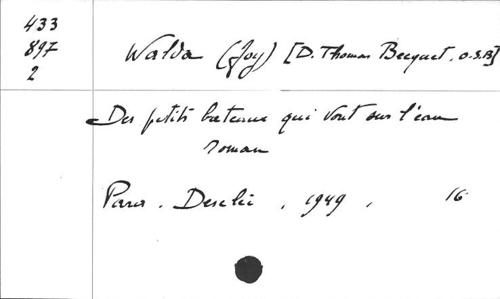 433
897
2
Walda (Joy) [D. Thomas Becquet, O.S.B]
Des petits bateaux qui vont sur l'eau
roman
Paris. Desclée, 1949, 16